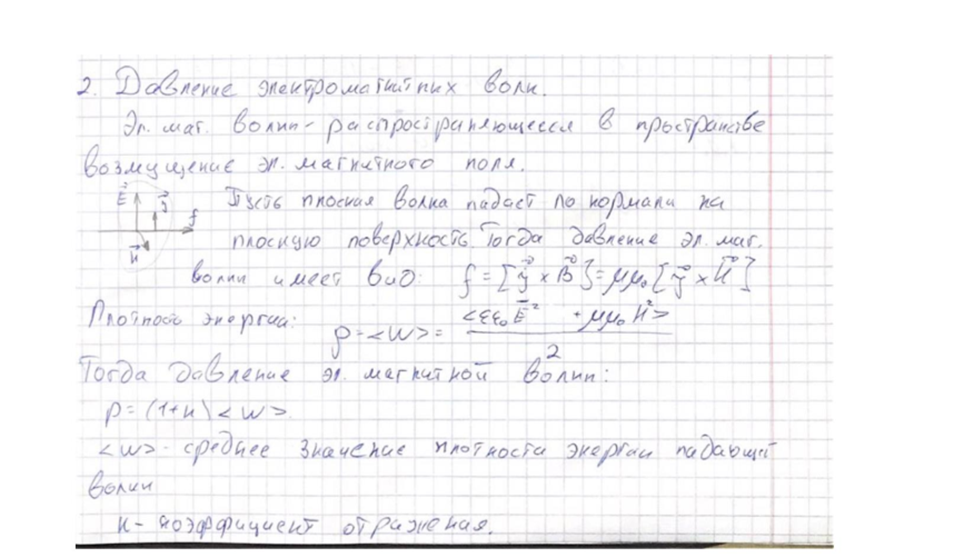 2. Давление электромагнитных волн.
Эл. маг. волны - распространяющееся в пространстве
возмущение эл. магнитного поля.
E j f H
Пусть плоская волна падает по нормали на
плоскую поверхность. Тогда давление эл. маг.
волны имеет вид: f = [j × B] = μμ₀ [j × H]
Плотность энергии: p = <w> = <εε₀E² + μμ₀H²> / 2
Тогда давление эл. магнитной волны:
p = (1+к) <w>.
<w> - среднее значение плотности энергии падающей
волны
к - коэффициент отражения.